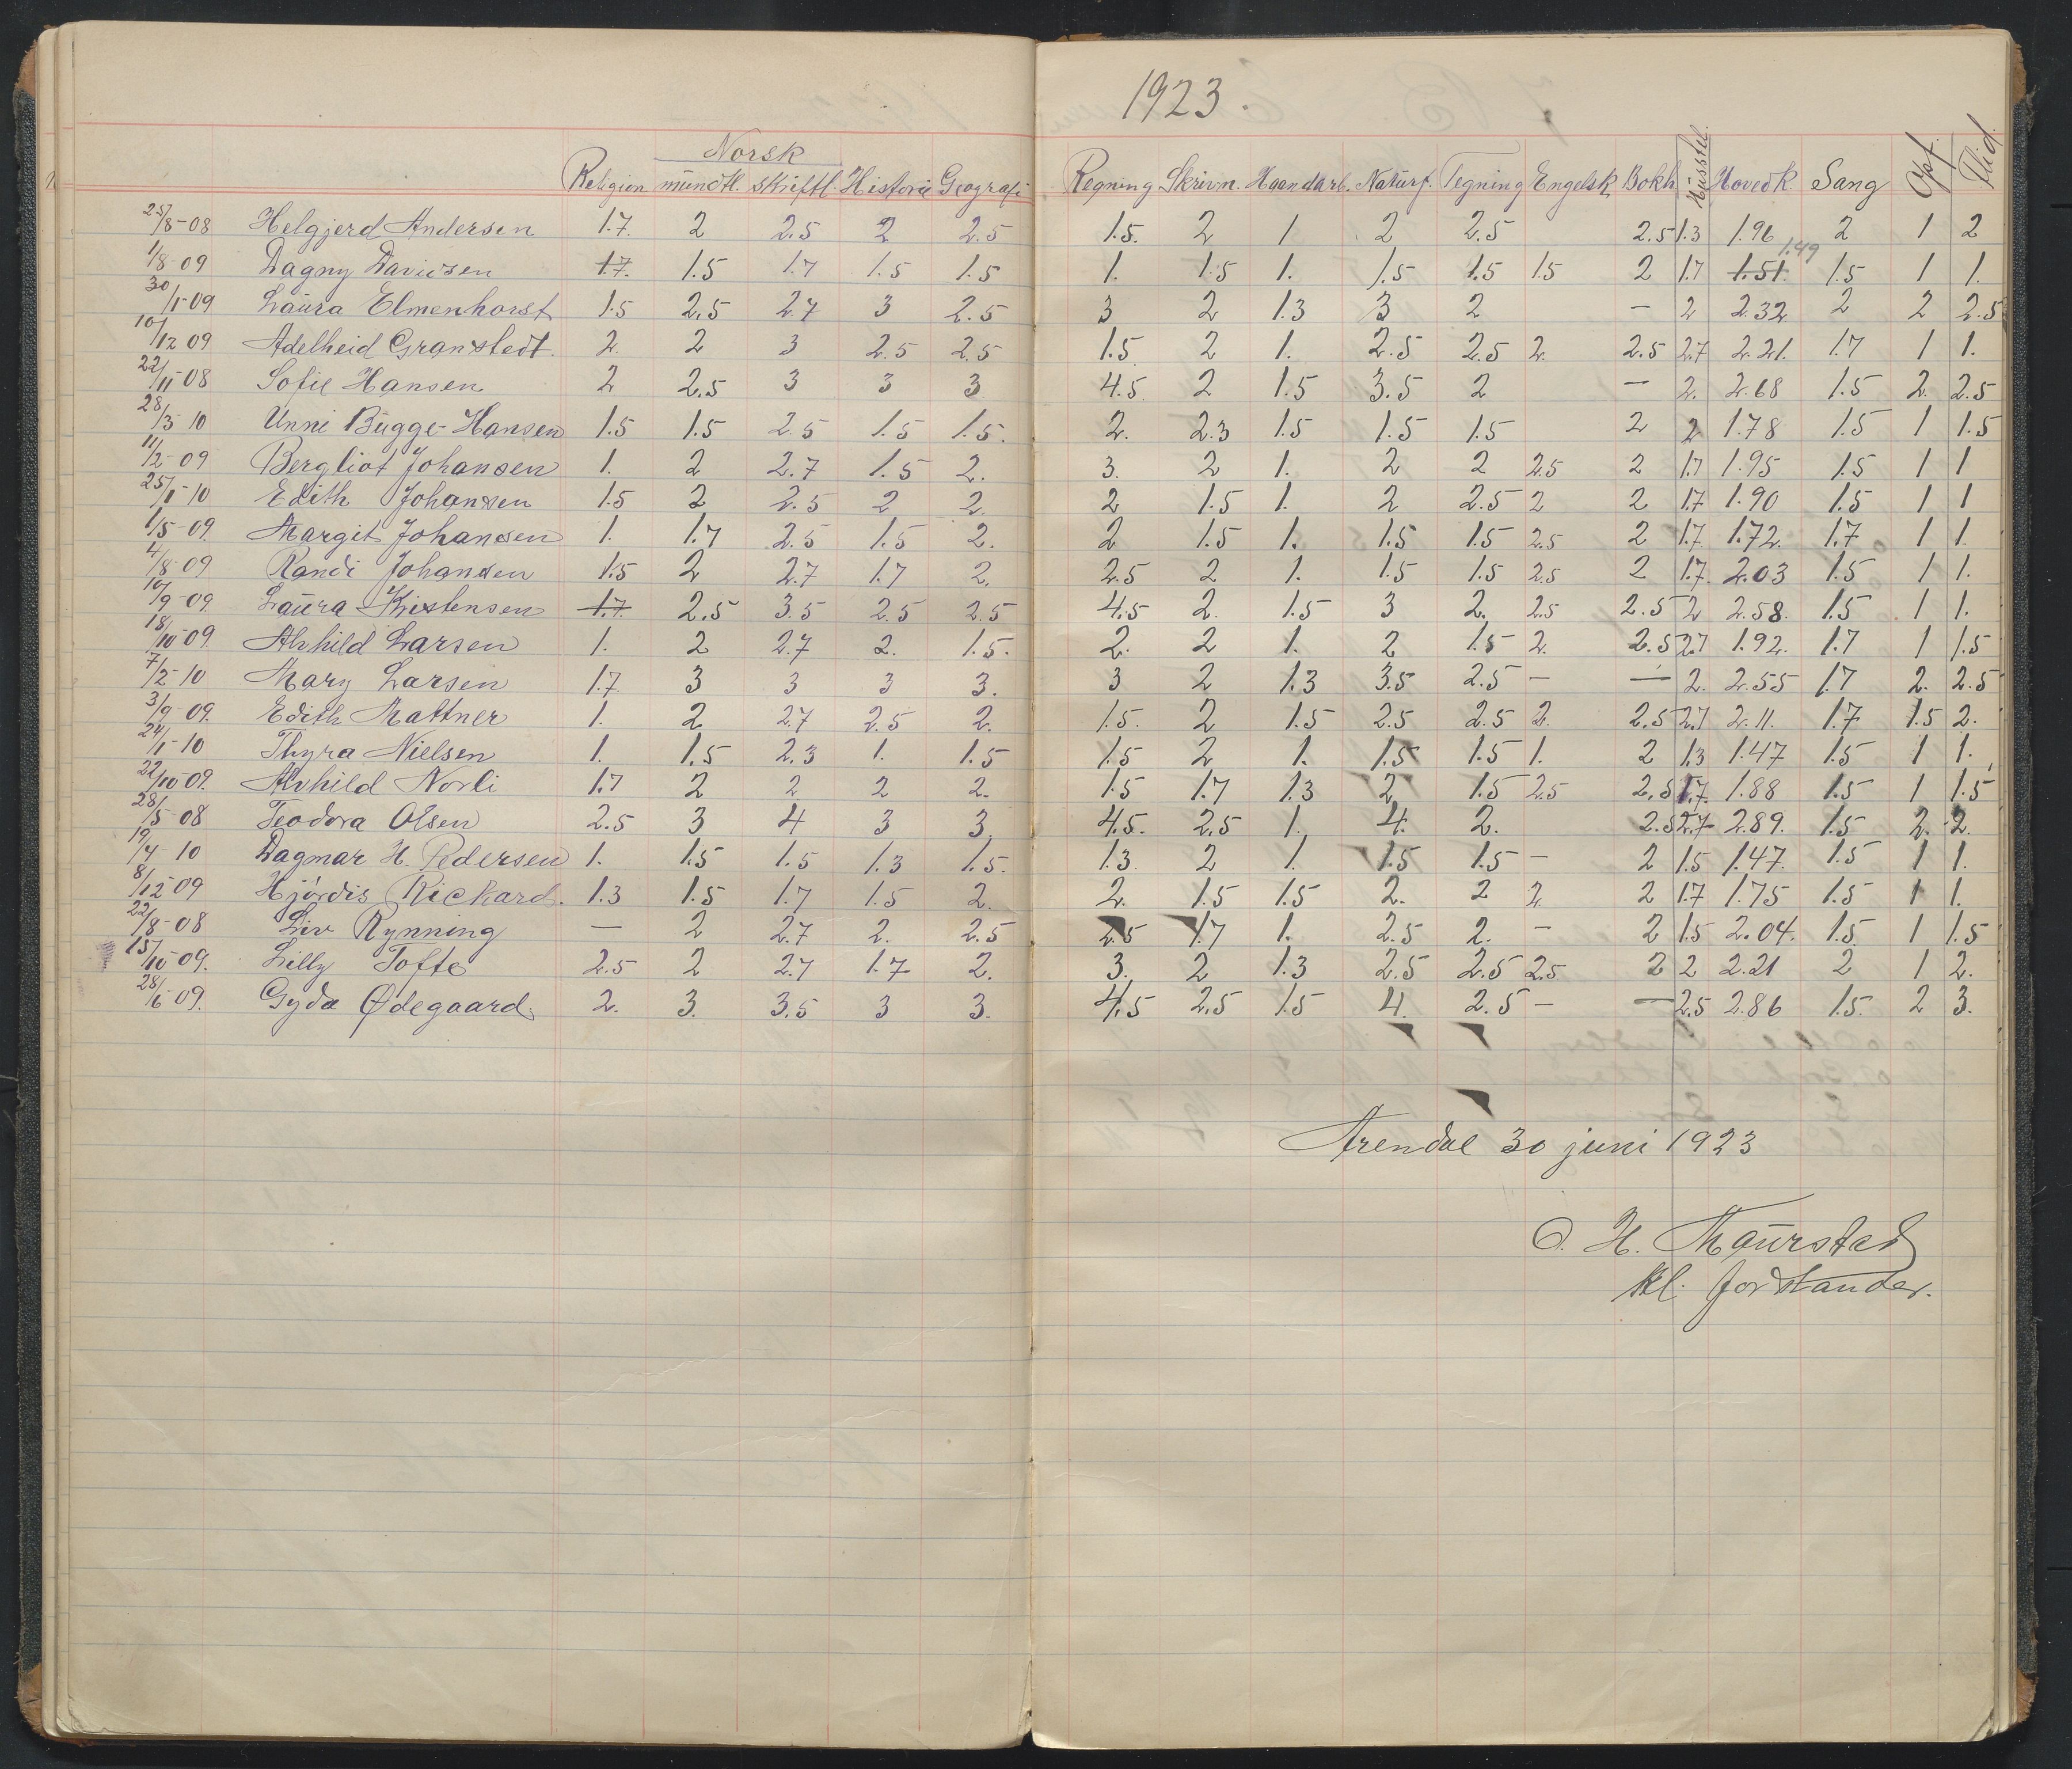 1923.
Norsk
Religion mündtl. skriftl. Historie Geografi Regning Skrivn. Haandarb. Naturf. Tegning Engelsk Bokh. Husstel. Hovedk. Sang Opf. Flid.
25/8-08 Helgjerd Andersen 1.7. 2 2.5 2 2.5 1.5. 2 1 2 2.5 2.5 1.3 1.96 2 1 2
1/8-09 Dagny Davidsen 1.7. 1.5 1.7 1.5 1.5 1. 1.5 1. 1.5 1.5 1.5 2 1.7 1.51. 1.49 1.5 1 1.
30/1-09 Laura Elmenhorst 1.5 2.5 2.7 3 2.5 3 2 1.3 3 2 — 2 2.32 2 2 2.5
10/12 09 Adelheid Granstedt. 2. 2 3 2.5 2.5 1.5. 2 1. 2.5 2.5 2. 2.5 2.7 2.21. 1.7 1 1.
22/11-08 Sofie Hansen 2 2.5 3 3 3 4.5. 2 1.5 3.5 2 — 2. 2.68 1.5 2. 2.5
28/3 10 Unni Bügge-Hansen 1.5 1.5 2.5 1.5 1.5. 2. 2.3 1.5 1.5 1.5 2 2 1.78 1.5 1 1.5
11/2-09 Bergliot Johansen 1. 2 2.7 1.5 2. 3. 2 1. 2 2 2.5 2 1.7 1.95 1.5 1 1
25/1-10 Edith Johansen 1.5 2 2.5 2 2. 2 1.5 1. 2 2.5 2 2 1.7 1.90 1.5 1 1
1/5-09. Margit Johansen 1. 1.7 2.5 1.5 2. 2 1.5 1. 1.5 1.5 2.5 2 1.7. 1.72. 1.7 1 1.
4/8-09 Randi Johansen 1.5 2 2.7 1.7 2. 2.5 2 1. 1.5 1.5 2.5 2 1.7. 2.03 1.5 1 1.
10/9-09. Laura Kristensen 1.7. 2.5 3.5 2.5 2.5 4.5 2. 1.5 3 2. 2.5 2.5 2 2.58. 1.5 1 1.
18/10-09. Alvhild Larsen 1. 2 2.7 2. 1.5. 2. 2 1. 2 1.5 2. 2.5 2.7 1.92. 1.7 1 1.5
7/2-10 Mary Larsen 1.7. 3 3 3 3. 3 2 1.3 3.5 2.5 — — 2. 2.55 1.7 2. 2.5
3/9-09. Edith Mattner 1. 2 2.7 2.5 2. 1.5. 2 1.5 2.5 2.5 2. 2.5 2.7 2.11. 1.7 1.5 2.
24/1-10 Thyra Nielsen 1. 1.5 2.3 1. 1.5 1.5 2 1. 1.5 1.5 1. 2 1.3 1.47 1.5 1 1.
22/10 09. Alvhild Norli 1.7 2 2 2 2. 1.5 1.7 1.3 2 1.5 2.5 2.5 1.7. 1.88 1.5 1 1.5
28/5-08 Teodora Olsen 2.5 3 4 3 3. 4.5. 2.5 1. 4. 2. 2.5 2.7 2.89. 1.5 2. 2.
19/4-10 Dagmar H. Pedersen 1. 1.5 1.5 1.3 1.5. 1.3 2 1. 1.5 1.5 — 2 1.5 1.47. 1.5 1 1.
8/12-09 Hjørdis Rickard. 1.3 1.5 1.7 1.5 2. 2. 1.5 1.5 2. 2 2 2 1.7 1.75 1.5 1 1.
22/8-08 Liv Rynning — 2 2.7 2. 2.5 2.5 1.7 1. 2.5 2. — 2 1.5 2.04. 1.5 1 1.5
15/10-09. Lilly Tofte 2.5 2 2.7 1.7 2. 3. 2 1.3 2.5 2.5 2.5 2 2 2.21 2 1 2.
28/6 09. Gyda Ødegaard 2. 3. 3.5 3 3. 4.5 2.5 1.5 4. 2.5 — — 2.5 2.86 1.5. 2 3.
Arendal 30 juni 1923
O. H. Maürstad
kl. forstander.